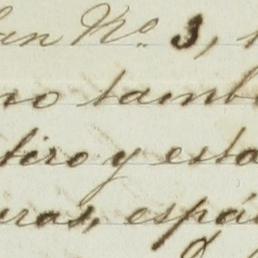 lan No. 3,
no tamb
tero y esta
uras, espá